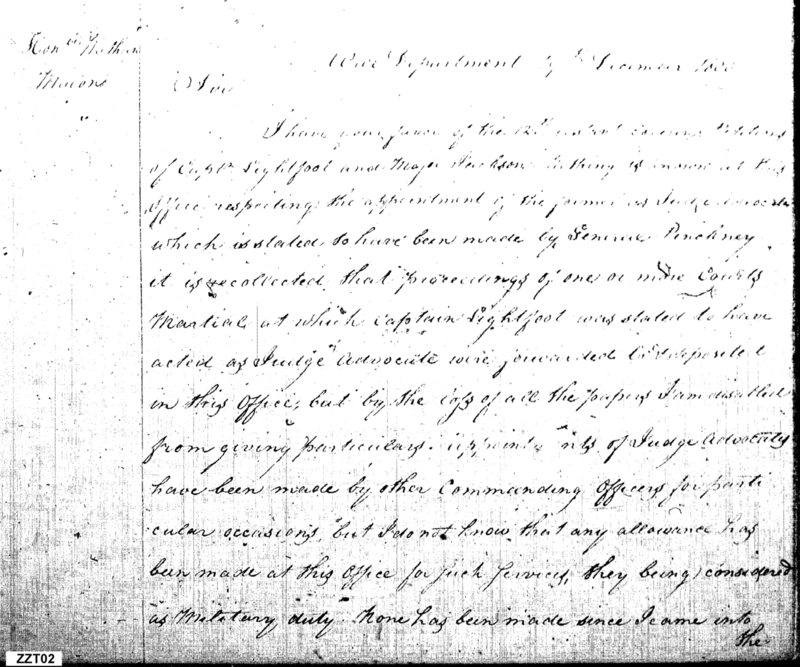 Honble Nathan
Macons
War Department December 1800
Sir
I have your favor of the 12th instant covering Petitions
of Captn Lightfoot and Major Jackson. Nothing is known at this
Office respecting the appointment of the former as Judge Advocate
which is stated to have been made by General Pinckney
it is recollected that proceedings of one or more Courts
Martial at which Captain Lightfoot was stated to have
acted as Judge Advocate were forwarded & deposited
in this Office, but by the loss of all the papers I am disabled
from giving particulars. appointments of Judge Advocates
have been made by other Commanding Officers for parti
cular occasions, but I do not know that any allowance has
been made at this Office for such services, they being considered
as Military duty. None has been made since I came into
the
ZZT02